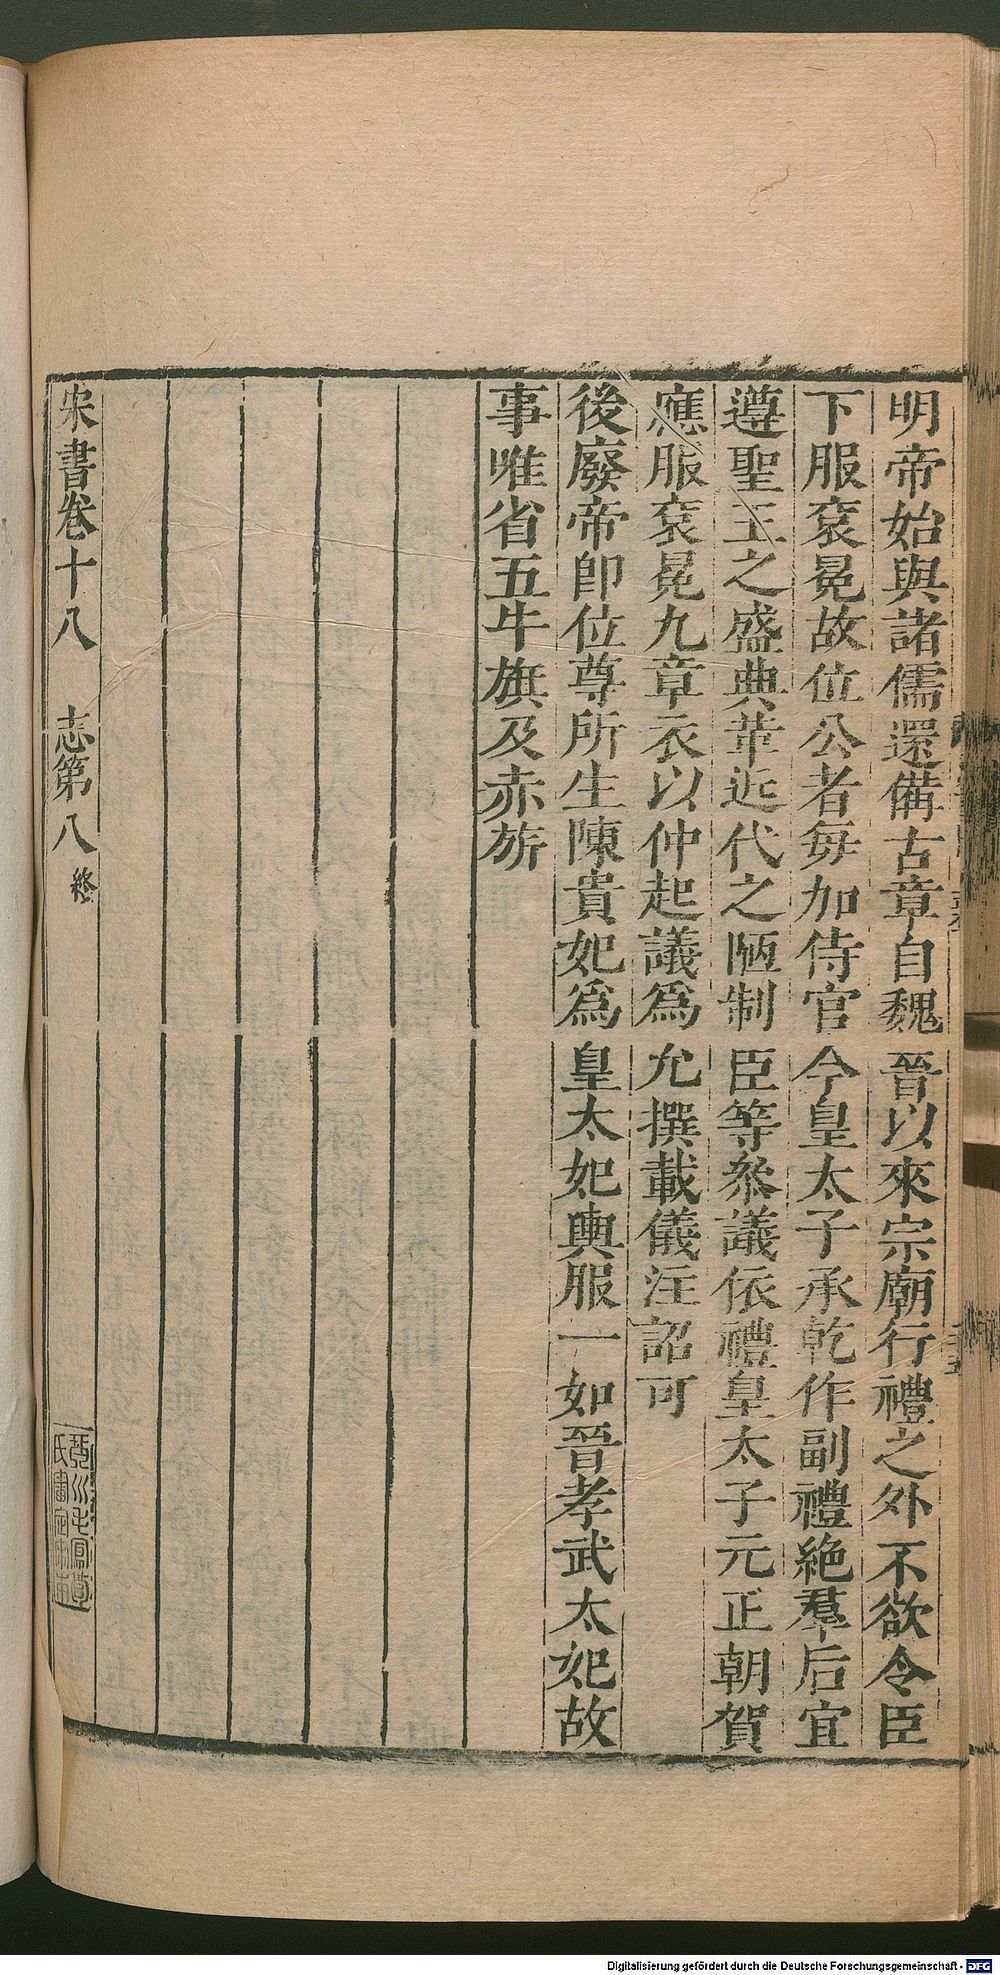 明帝始與諸儒還備古章自魏晉以來宗廟行禮之外不欲令臣
下服袞冕故位公者每加侍官今皇太子承乾作副禮絶羣后宜
遵聖王之盛典革近代之陋制臣等叅議依禮皇太子元正朝賀
應服袞冕九章衣以仲起議爲允撰載儀注詔可
後廢帝卽位尊所生陳貴妃爲皇太妃輿服一如晉孝武太妃故
事唯省五牛旗及赤旂
宋書卷十八 志第八 終
琴川毛鳳苞
氏審定宋本
Digitalisierung gefördert durch die Deutsche Forschungsgemeinschaft - DFG